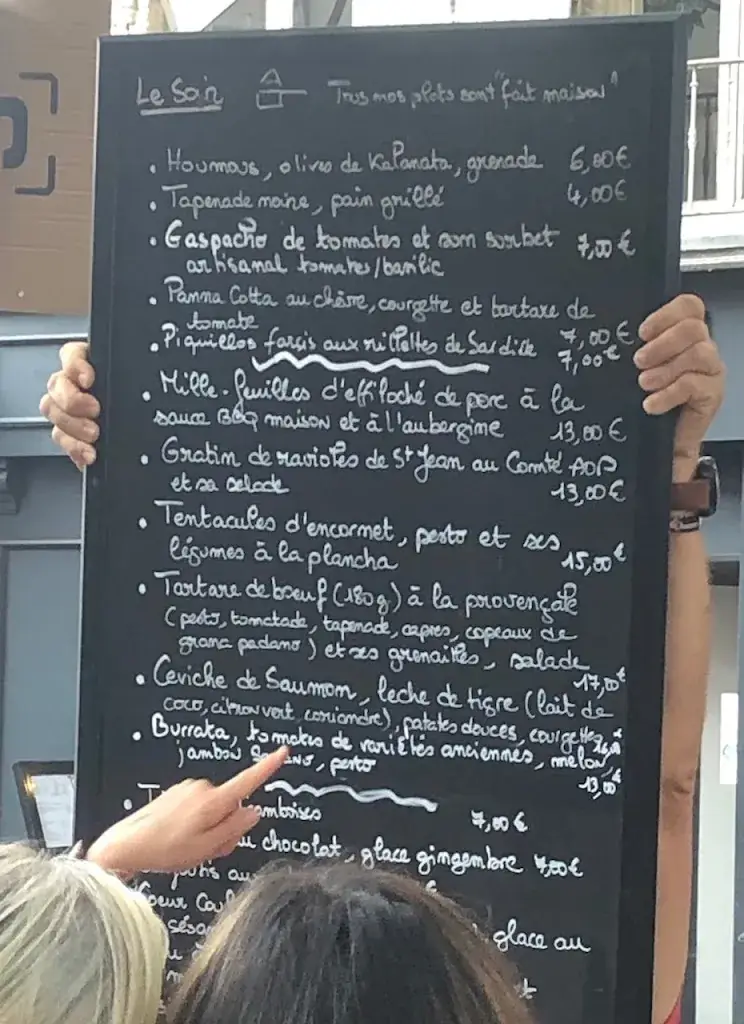 Le Soir Tous nos plats sont "fait maison"
• Houmous, olives de Kalamata, grenade 6,00€
• Tapenade noire, pain grillé 4,00€
• Gaspacho de tomates et son sorbet 7,00€
artisanal tomates/basilic
• Panna Cotta au chèvre, courgette et tartare de
tomate 7,00€
• Piquillos farcis aux rillettes de Sardine 7,00€
• Mille-feuilles d'effiloché de porc à la
sauce BBQ maison et à l'aubergine 13,00€
• Gratin de ravioles de St Jean au Comté AOP
et sa salade 13,00€
• Tentacules d'encornet, pesto et ses
légumes à la plancha 15,00€
• Tartare de bœuf (180g) à la provençale
(pesto, tomatade, tapenade, capres, copeaux de
grana padano) et ses grenailles, salade
17,00€
• Ceviche de Saumon, leche de tigre (lait de
coco, citron vert, coriandre), patates douces, courgettes
• Burrata, tomates de variétés anciennes, melon,
jambon pesto 13,00€
7,00€
chocolat, glace gingembre 7,00€
au
Coeur
glace au